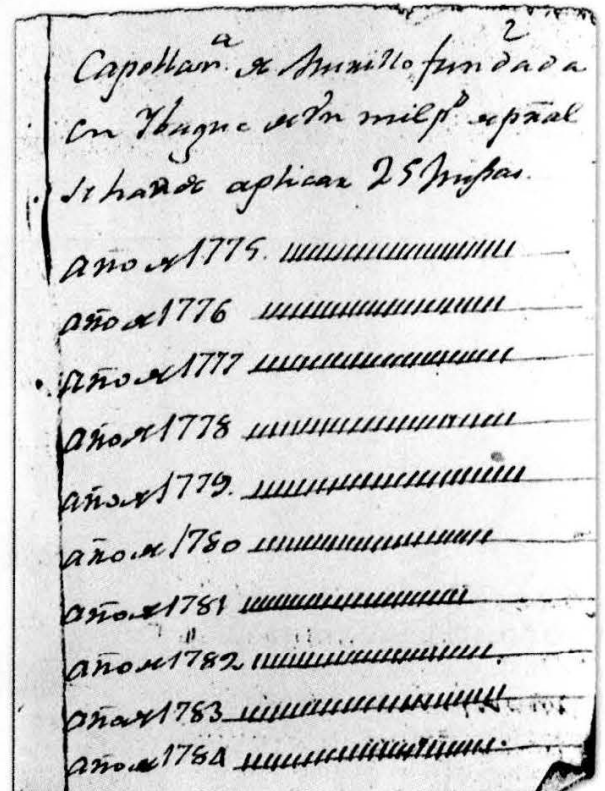 2
Capellan.ª de Murillo fundada
en Ybague de Vn mil p.s de pñal
se hande aplicar 25 Missas.
año de 1775.
año de 1776
año de 1777
año de 1778
año de 1779.
año de 1780
año de 1781
año de 1782
año de 1783
año de 1784